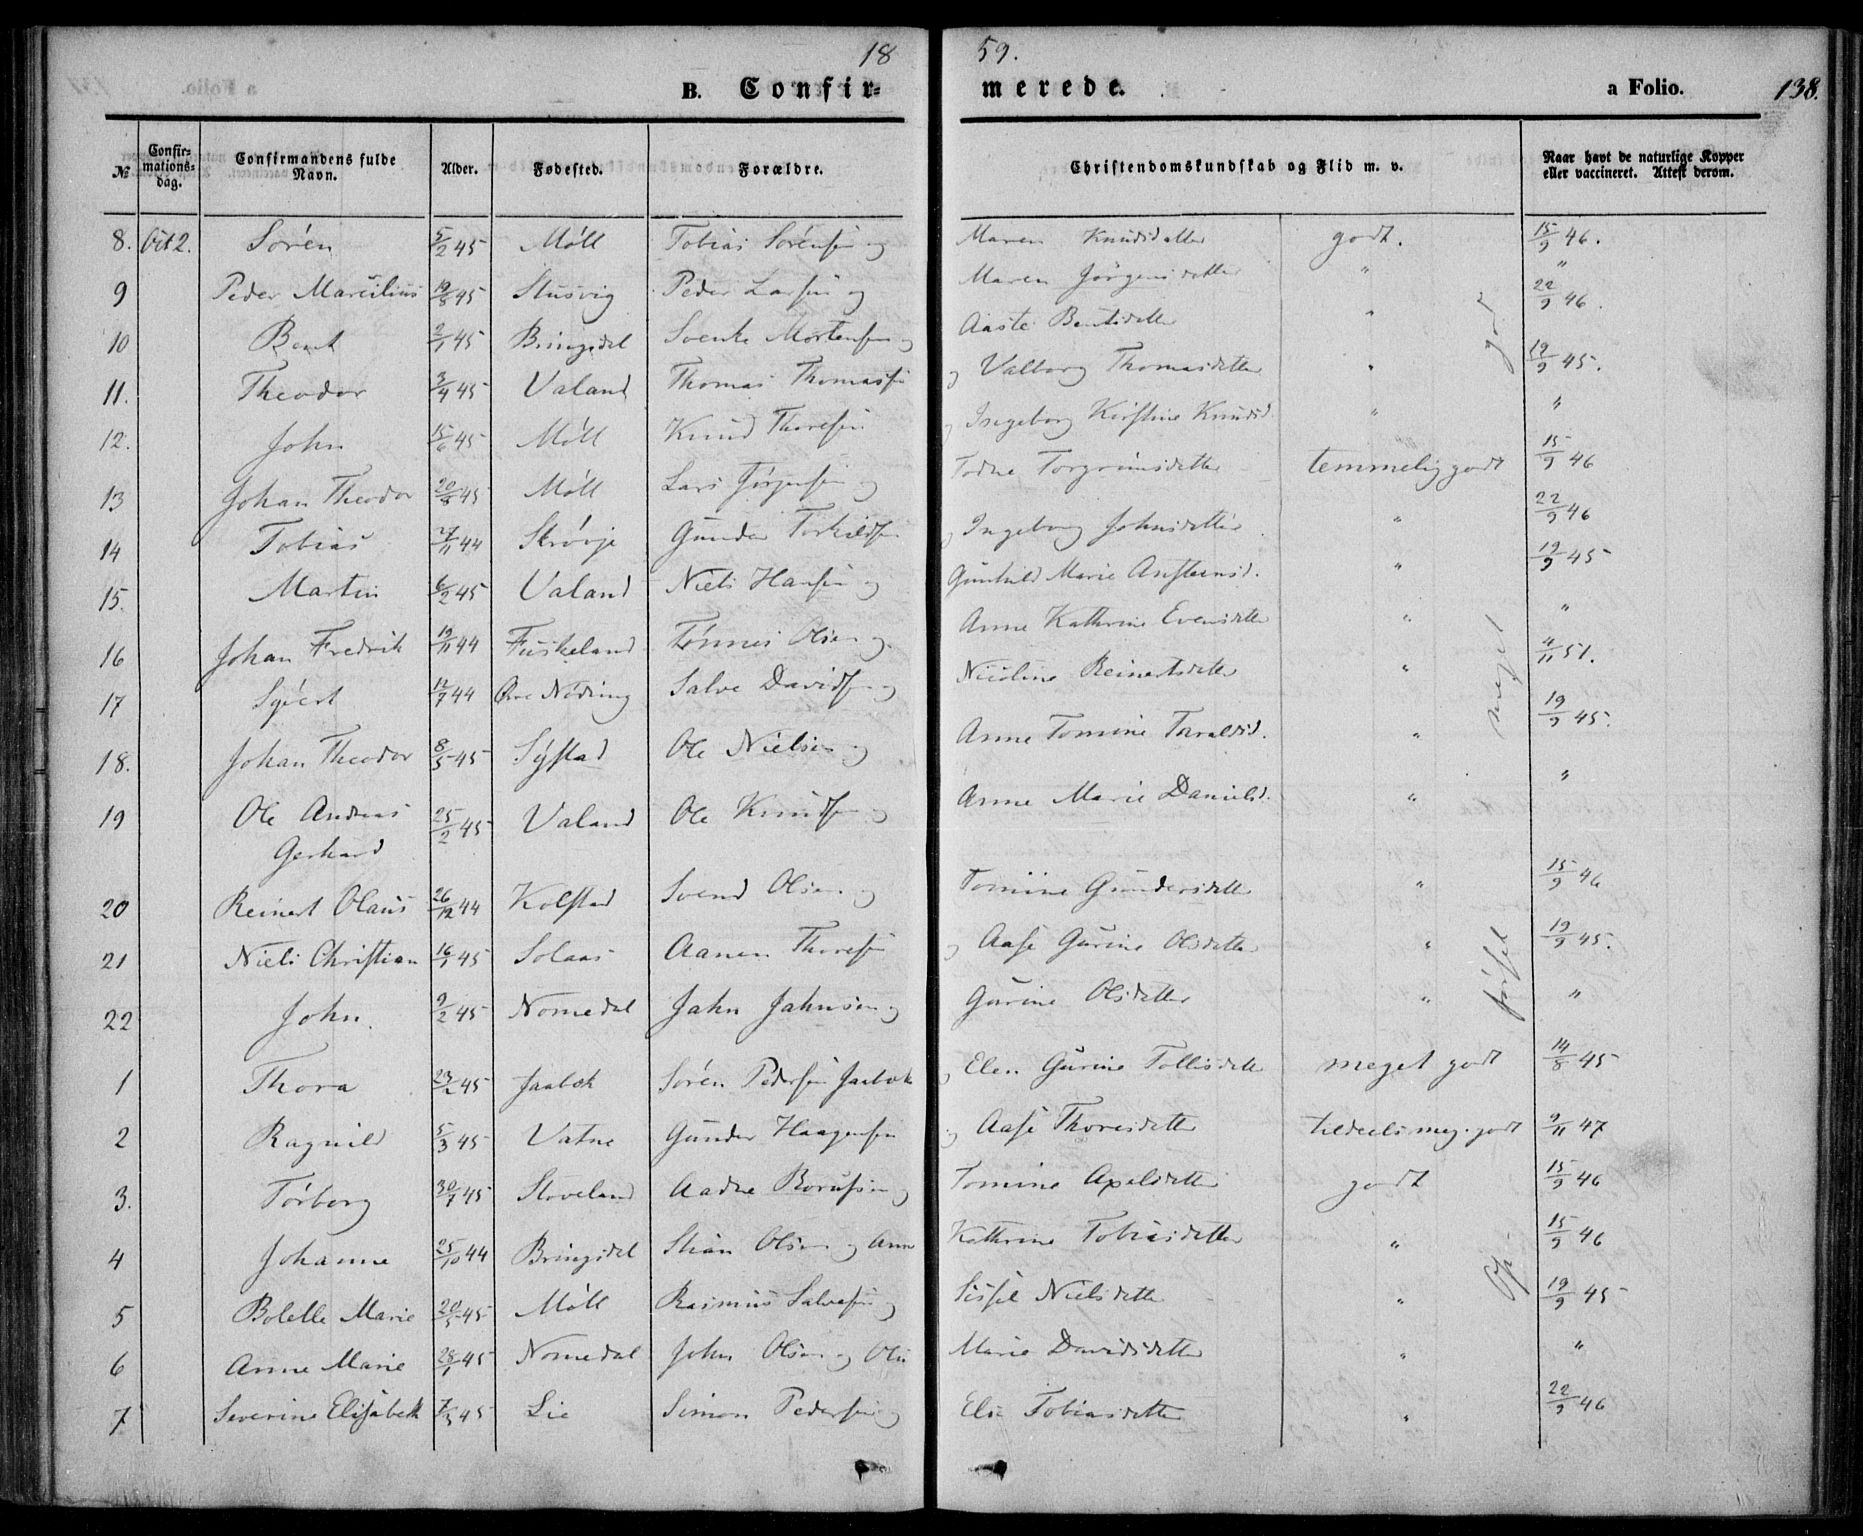 18 59.
B. Confir- merede. a Folio. 138.
№ Confir-mations-dag. Confirmandens fulde Navn. Alder. Fødested. Forældre. Christendomskundskab og Flid m. v. Naar havt de naturlige Kopper eller vaccineret. Attest derom.
8. Oct 2. Sørén 5/2 45 Møll Tobias Sørénsen og Maren Knudsdatter godt. 15/9 46.
9 Peder Marcilius 19/8 45 Stusvig Peder Larsen og Maren Jørgensdatter " "
10 Bent 2/1 45 Bringsdal Svenke Mortensen og Aaste Bentsdatter " 22/9 46.
11. Theodor 3/4 45 Valand Thomas Thomassen og Valborg Thomasdatter " 19/9 45.
12. John 15/6 45 Møll Knud Thoresen og Ingeborg Kirstine Knudsd. " "
13 Johan Theodor 20/8 45 Møll Lars Jørgensen og Todne Torgrimsdatter temmelig godt 15/9 46
14 Tobias 27/11 44 Skrøvje Gunder Torkildsen og Ingeborg Johnsdatter " 22/9 46
15. Martin 6/2 45 Valand Niels Hansen og Gunhild Marie Anstensd. " 19/9 45
16 Johan Fredrik 19/11 44 Fuskeland Tønnes Olsen og Anne Kathrine Evensdatter " "
17 Sjvert 12/7 44 Øvre Nødting Salve Davidsen og Nicoline Reinertsdatter " 4/11 51.
18. Johan Theodor 8/5 45 Sÿstad Ole Nielsen og Anne Tomine Taraldsd. " 19/9 45.
19 Ole Andreas Gerhard 25/2 45 Valand Ole Knudsen og Anne Marie Danielsd. " "
20 Reinert Olaus 26/12 44 Kolstad Svend Olsen og Tomine Gundersdatter " 15/9 46
21 Niels Christian 16/1 45 Solaas Aanen Thoresen og Aase Gurine Olsdatter " 19/9 45.
22 John. 9/2 45 Nomedal Jahn Jahnsen og Gurine Olsdatter " "
1 Thora 23/2 45 Jaabæk Søren Pedersen Jaabæk og Elen Gurine Tollisdatter meget godt 14/8 45
2 Ragnild 5/3 45 Vatne Gunder Haagensen og Aase Thoresdatter tildeels meg. godt 9/11 47
3. Tørborg 30/7 45 Stoveland Aadne Borufsen og Tomine Apelsdatter godt 15/9 46
4 Johanne 25/10 44 Bringsdal Stian Olsen og Ann Kathrine Tobiasdatter " 15/9 46
5 Bolette Marie 20/5 45 Møll Rasmus Salvesen og Sissel Nielsdatter " 19/9 45
6 Anne Marie 28/1 45 Nomedal John Olsen og Marie Davidsdatter " "
7 Severine Elisabeth 7/3 45 Lie Simon Pedersen og Else Tobiasdatter " 22/9 46
Op- førsel meget god